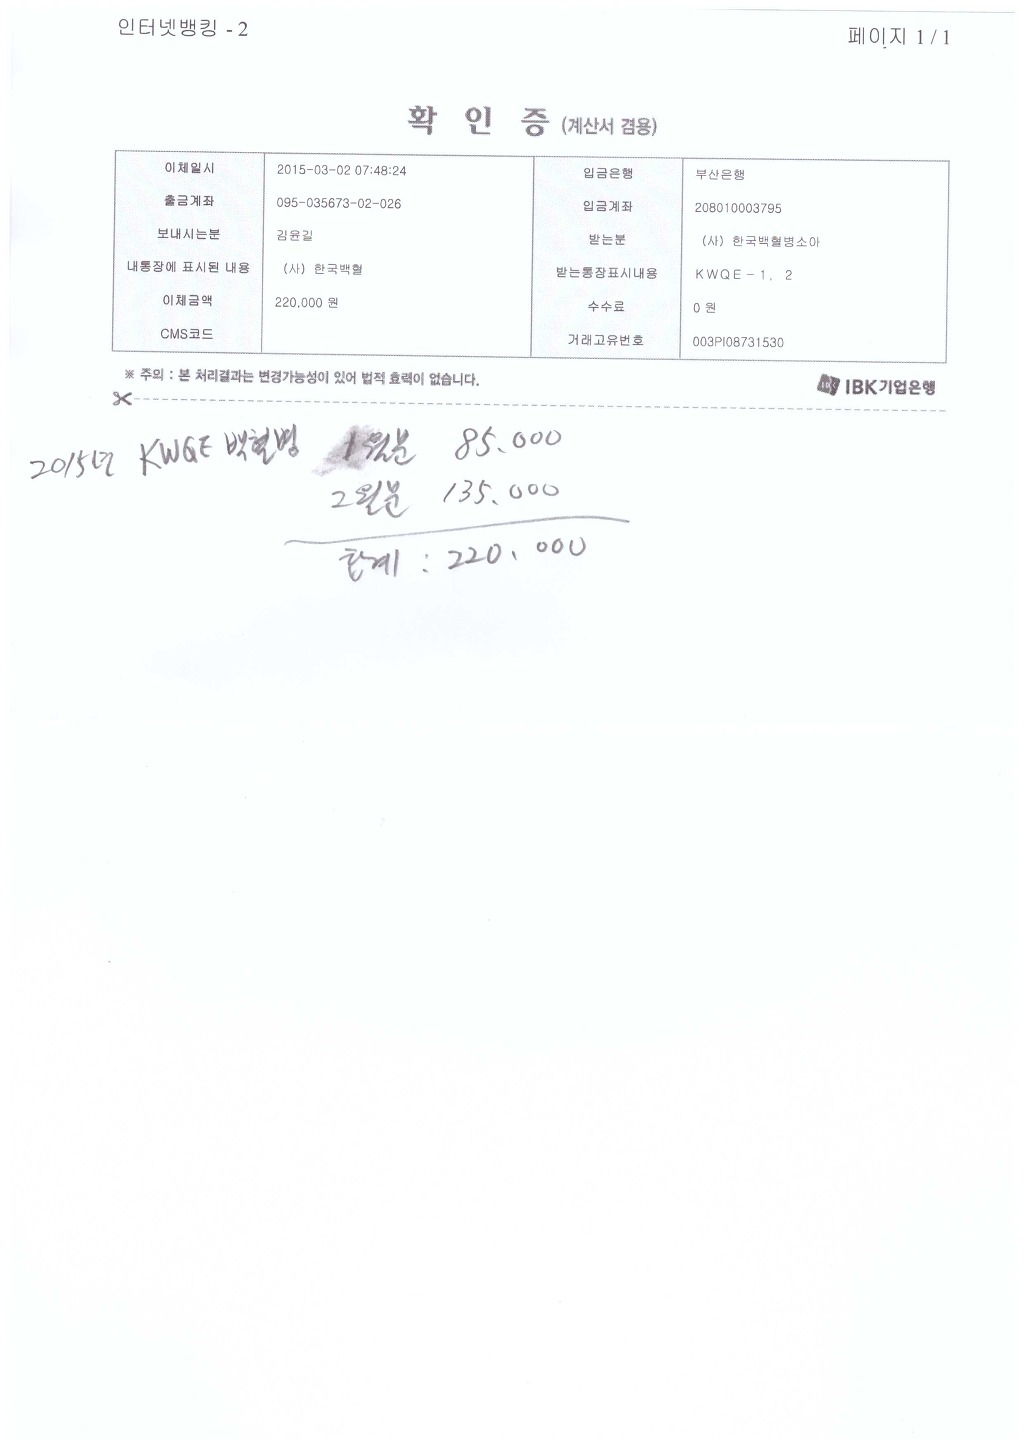 인터넷뱅킹 - 2
페이지 1 / 1
확 인 증 (계산서 겸용)
이체일시 2015-03-02 07:48:24 입금은행 부산은행
출금계좌 095-035673-02-026 입금계좌 208010003795
보내시는분 김윤길 받는분 (사) 한국백혈병소아
내통장에 표시된 내용 (사) 한국백혈 받는통장표시내용 KWQE-1, 2
이체금액 220,000 원 수수료 0 원
CMS코드 거래고유번호 003PI08731530
※ 주의 : 본 처리결과는 변경가능성이 있어 법적 효력이 없습니다.
IBK기업은행
2015년 KWQE 백혈병 1월분 85.000
2월분 135.000
합계 : 220.000